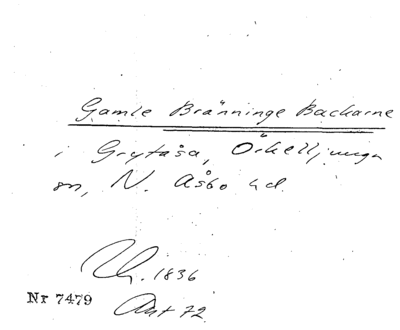 Gamle Bränninge Backarne
i Grytåsa, Örkelljunga
sn, N. Åsbo hd.
1836
Nr 7479
Akt 72